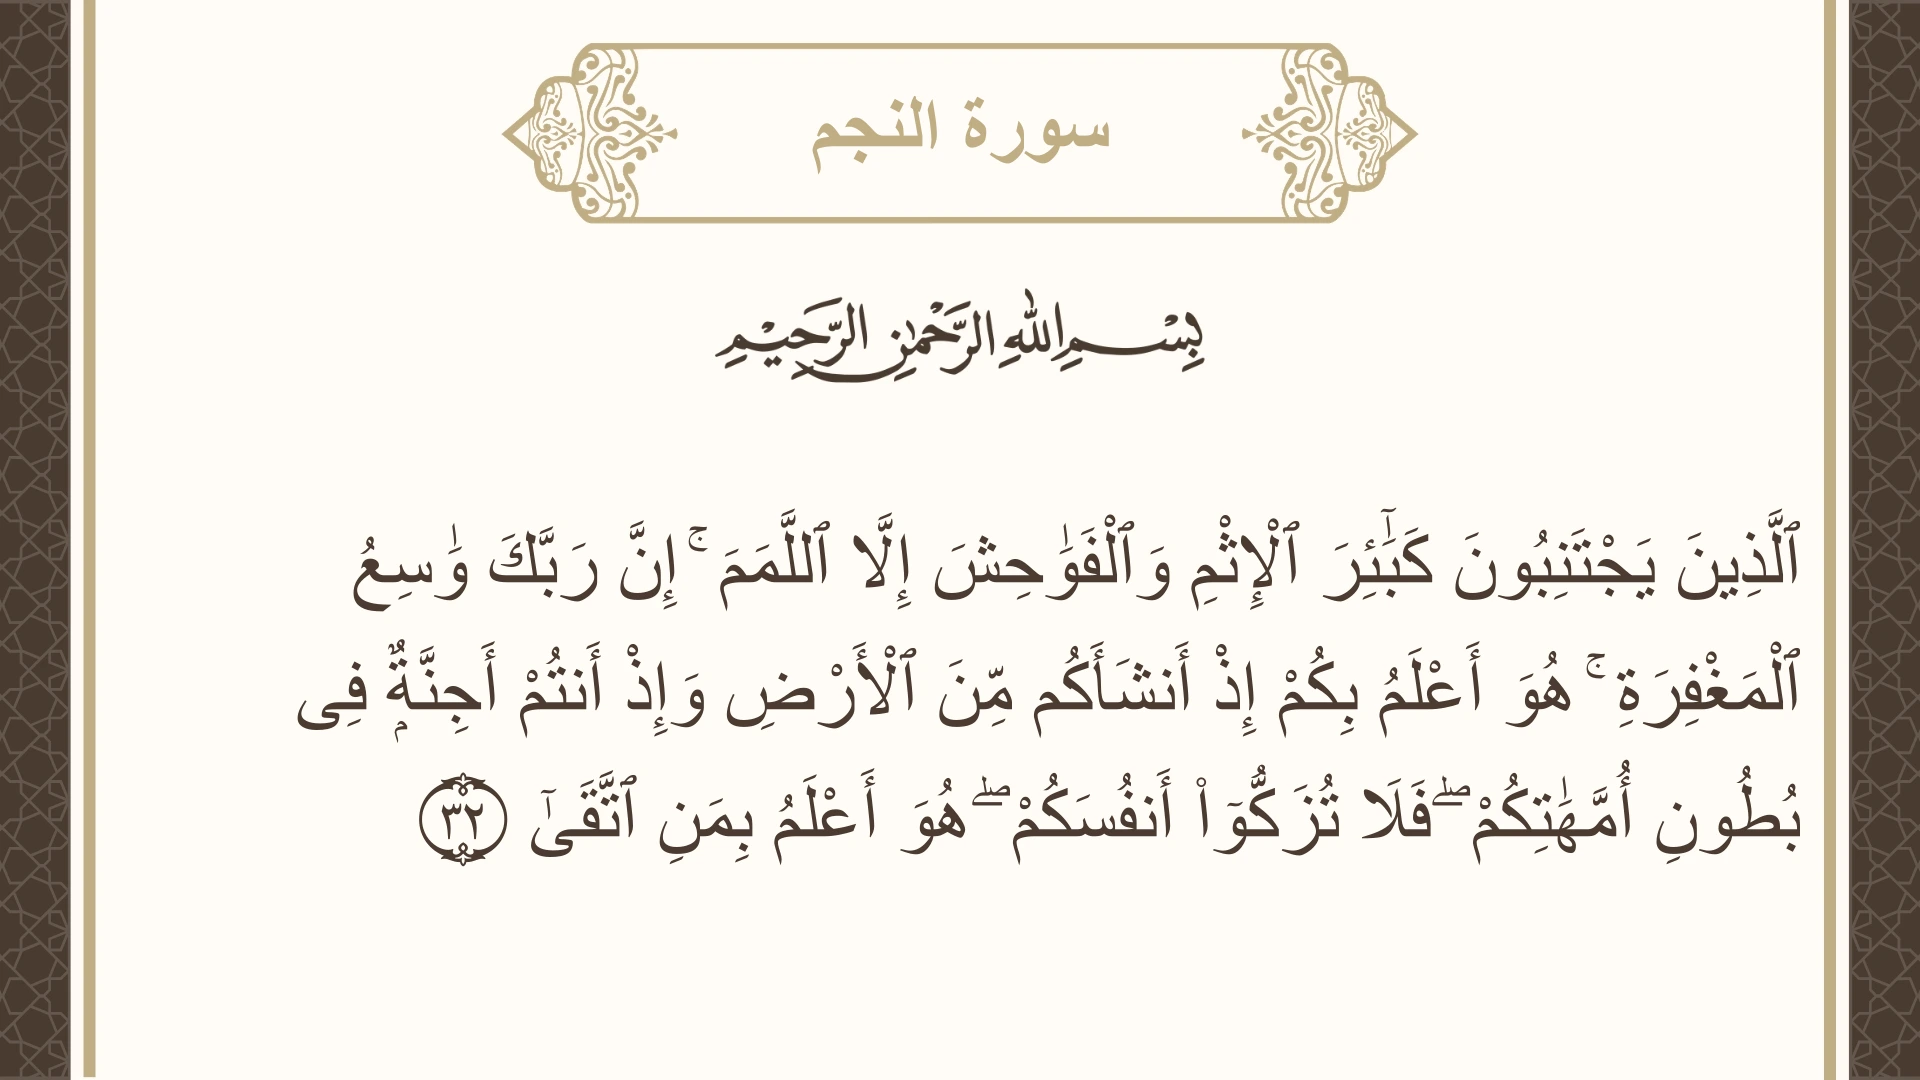 سورة النجم
بِسْمِ اللهِ الرَّحْمٰنِ الرَّحِيْمِ
ٱلَّذِينَ يَجْتَنِبُونَ كَبَـٰٓئِرَ ٱلْإِثْمِ وَٱلْفَوَٰحِشَ إِلَّا ٱللَّمَمَ ۚ إِنَّ رَبَّكَ وَٰسِعُ
ٱلْمَغْفِرَةِ ۚ هُوَ أَعْلَمُ بِكُمْ إِذْ أَنشَأَكُم مِّنَ ٱلْأَرْضِ وَإِذْ أَنتُمْ أَجِنَّةٌۭ فِى
بُطُونِ أُمَّهَـٰتِكُمْ ۖ فَلَا تُزَكُّوٓا۟ أَنفُسَكُمْ ۖ هُوَ أَعْلَمُ بِمَنِ ٱتَّقَىٰٓ ٣٢